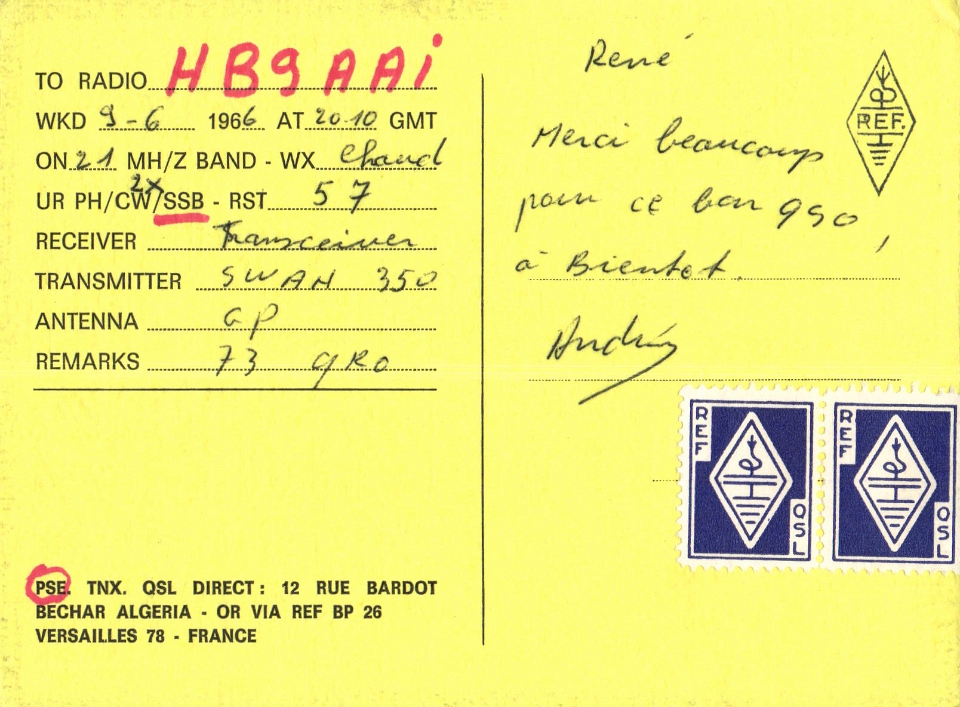 TO RADIO HB9AAi
WKD 9-6 1966 AT 20.10 GMT
ON 21 MH/Z BAND - WX Chaud
2X
UR PH/CW/SSB - RST 57
RECEIVER Transceiver
TRANSMITTER SWAN 350
ANTENNA GP
REMARKS 73 qRO
PSE. TNX. QSL DIRECT : 12 RUE BARDOT
BECHAR ALGERIA - OR VIA REF BP 26
VERSAILLES 78 - FRANCE
René
REF.
Merci beaucoup
pour ce bon qso,
à Bientot.
André
REF
QSL
REF
QSL